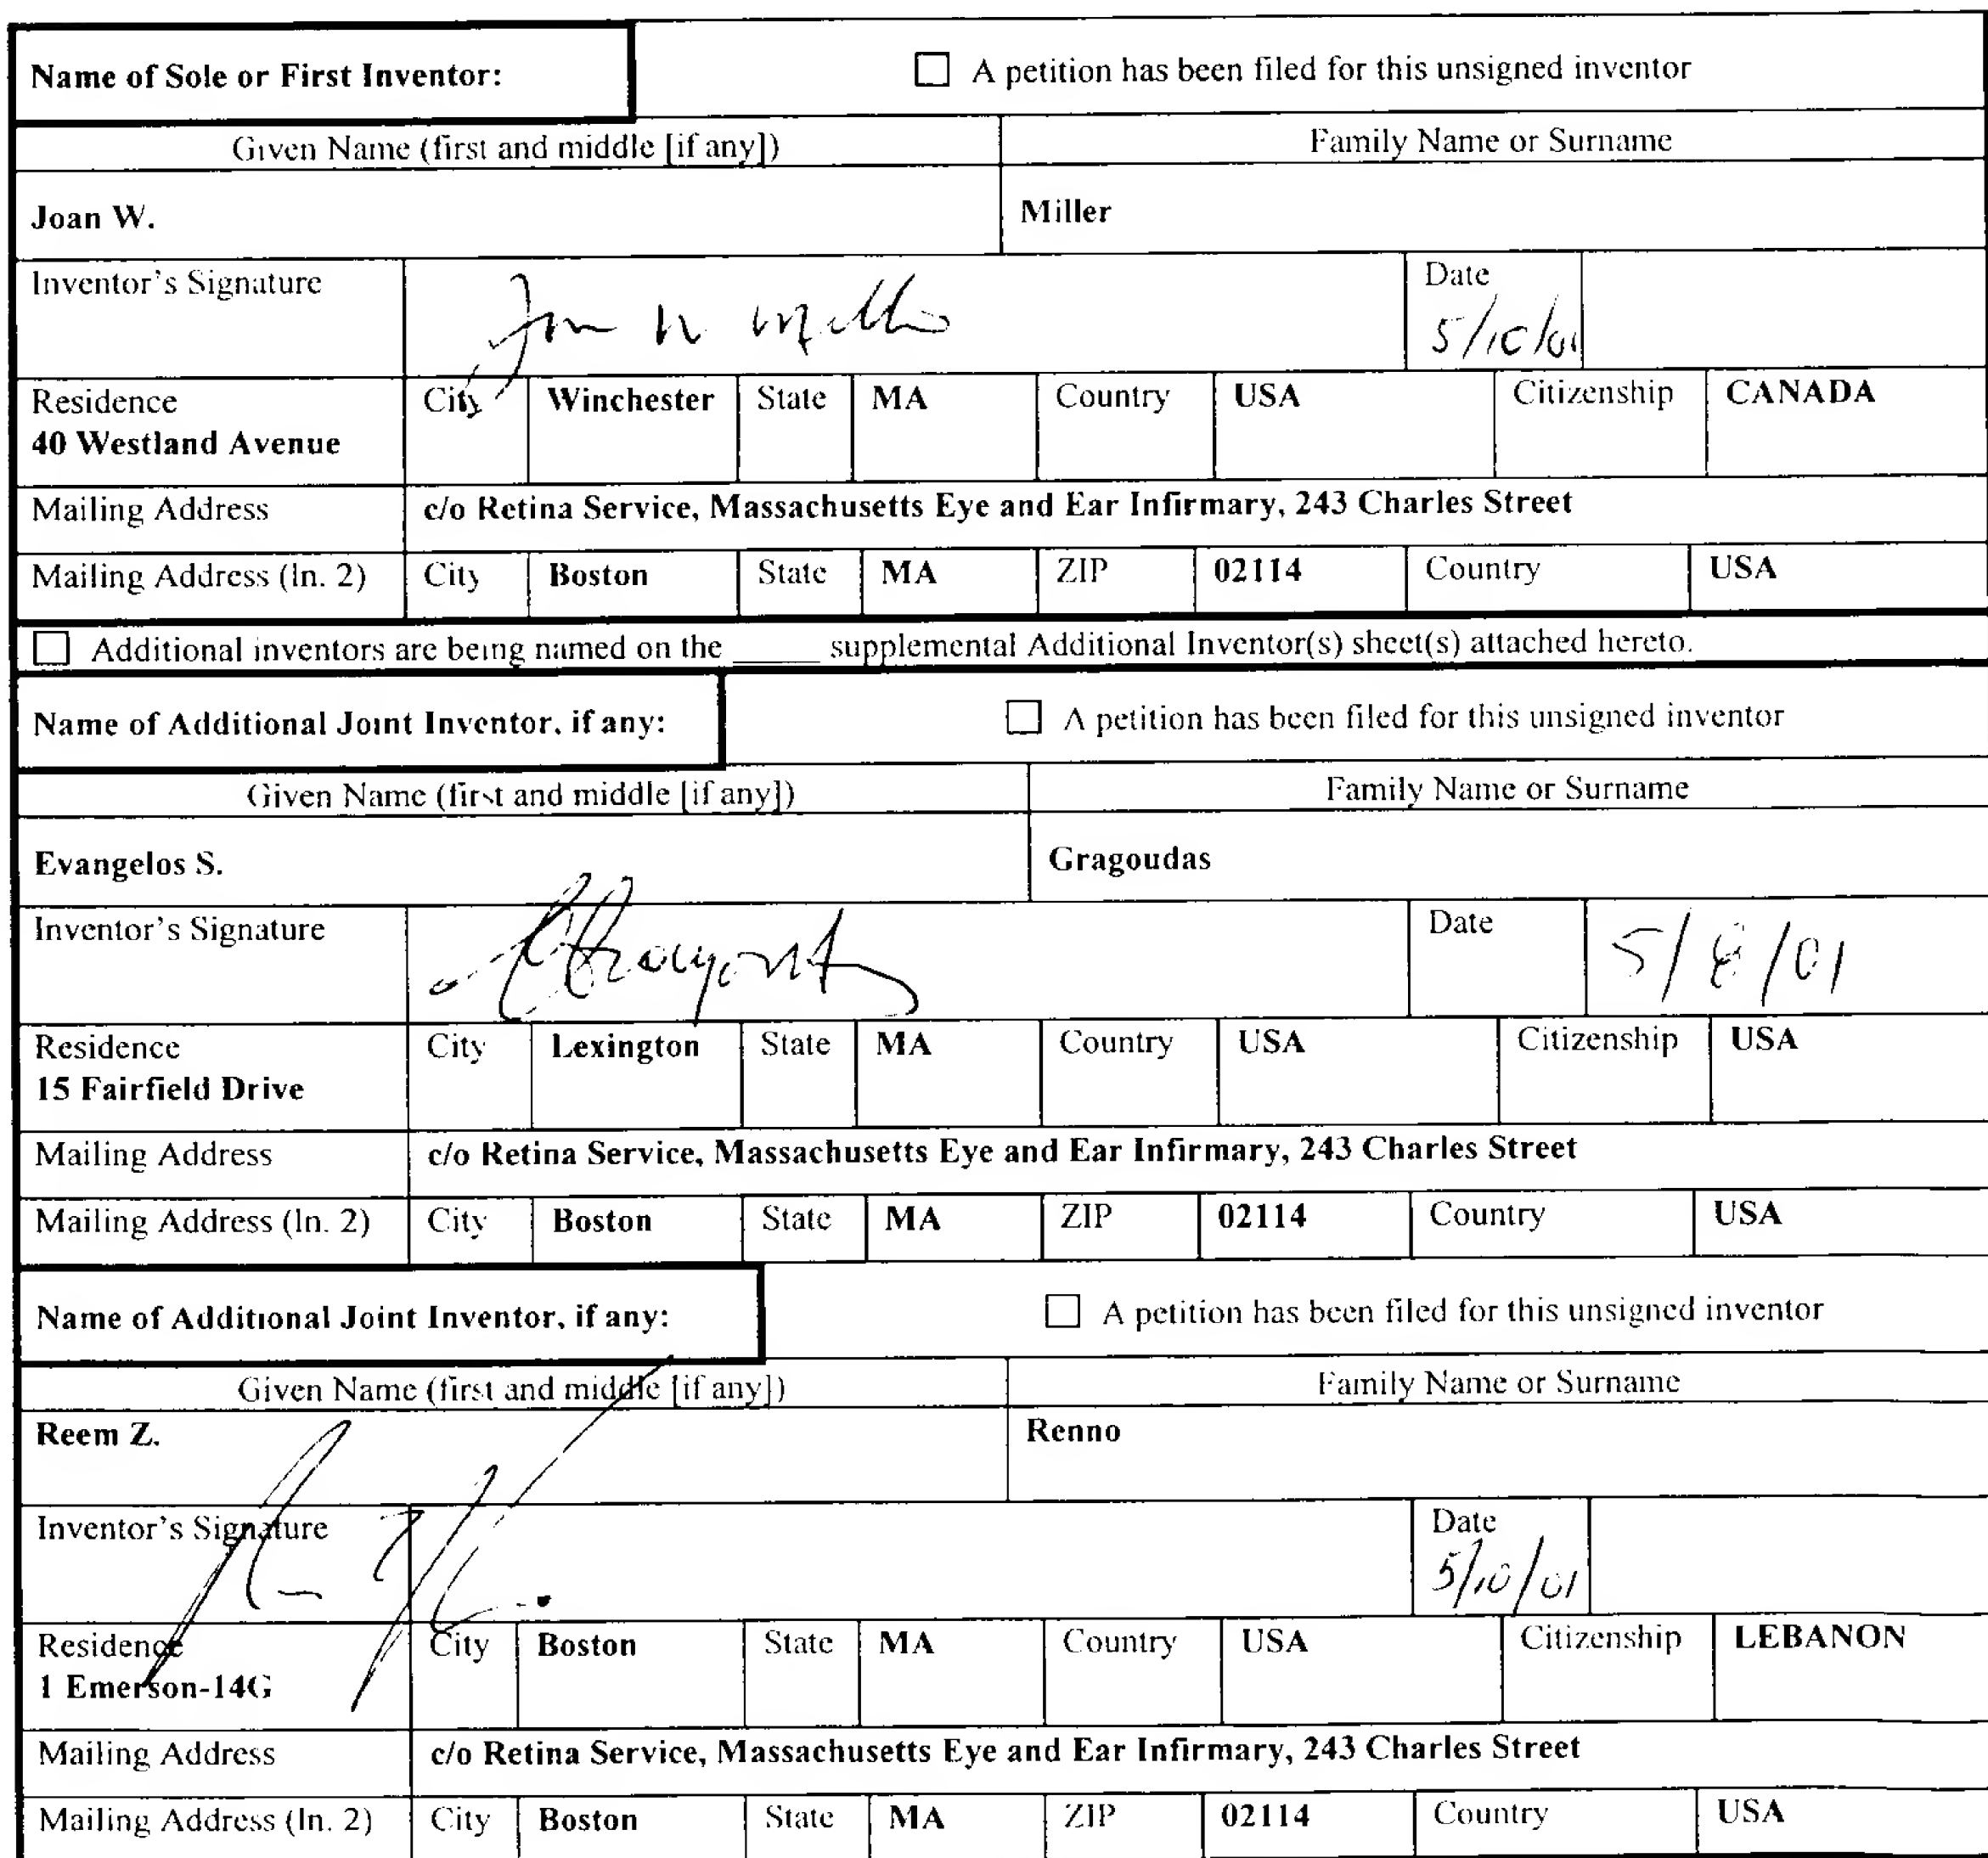 Name of Sole or First Inventor: ☐ A petition has been filed for this unsigned inventor
Given Name (first and middle [if any]) Family Name or Surname
Joan W. Miller
Inventor's Signature Date
5/10/01
Residence City Winchester State MA Country USA Citizenship CANADA
40 Westland Avenue
Mailing Address c/o Retina Service, Massachusetts Eye and Ear Infirmary, 243 Charles Street
Mailing Address (ln. 2) City Boston State MA ZIP 02114 Country USA
☐ Additional inventors are being named on the _____ supplemental Additional Inventor(s) sheet(s) attached hereto.
Name of Additional Joint Inventor, if any: ☐ A petition has been filed for this unsigned inventor
Given Name (first and middle [if any]) Family Name or Surname
Evangelos S. Gragoudas
Inventor's Signature Date 5/8/01
Residence City Lexington State MA Country USA Citizenship USA
15 Fairfield Drive
Mailing Address c/o Retina Service, Massachusetts Eye and Ear Infirmary, 243 Charles Street
Mailing Address (ln. 2) City Boston State MA ZIP 02114 Country USA
Name of Additional Joint Inventor, if any: ☐ A petition has been filed for this unsigned inventor
Given Name (first and middle [if any]) Family Name or Surname
Reem Z. Renno
Inventor's Signature Date
5/10/01
Residence City Boston State MA Country USA Citizenship LEBANON
1 Emerson-14G
Mailing Address c/o Retina Service, Massachusetts Eye and Ear Infirmary, 243 Charles Street
Mailing Address (ln. 2) City Boston State MA ZIP 02114 Country USA